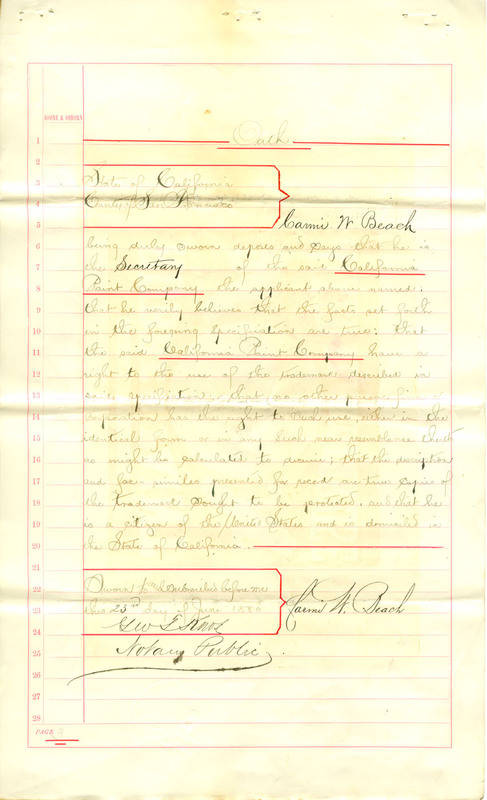 BOONE & OSBORN
1
2
3
4
5
6
7
8
9
10
11
12
13
14
15
16
17
18
19
20
21
22
23
24
25
26
27
28
Oath
State of California
County of San Francisco
Carmi W Beach
being duly sworn deposes and says that he is
the Secretary of the said California
Paint Company the applicant above named:
that he verily believes that the facts set forth
in the foregoing specification are true: that
the said California Paint Company have a
right to the use of the trademark described in
said specification; that no other person, firm or
corporation has the right to such use, either in the
identical form or in any such near resemblance thereto
as might be calculated to deceive; that the description
and fac-similes presented for record are true copies of
the trademark sought to be protected, and that he
is a citizen of the United States and is domiciled in
the State of California.
Sworn to and subscribed before me
this 23rd day of June 1880
Geo T Knox
Notary Public
Carmi W. Beach
PAGE